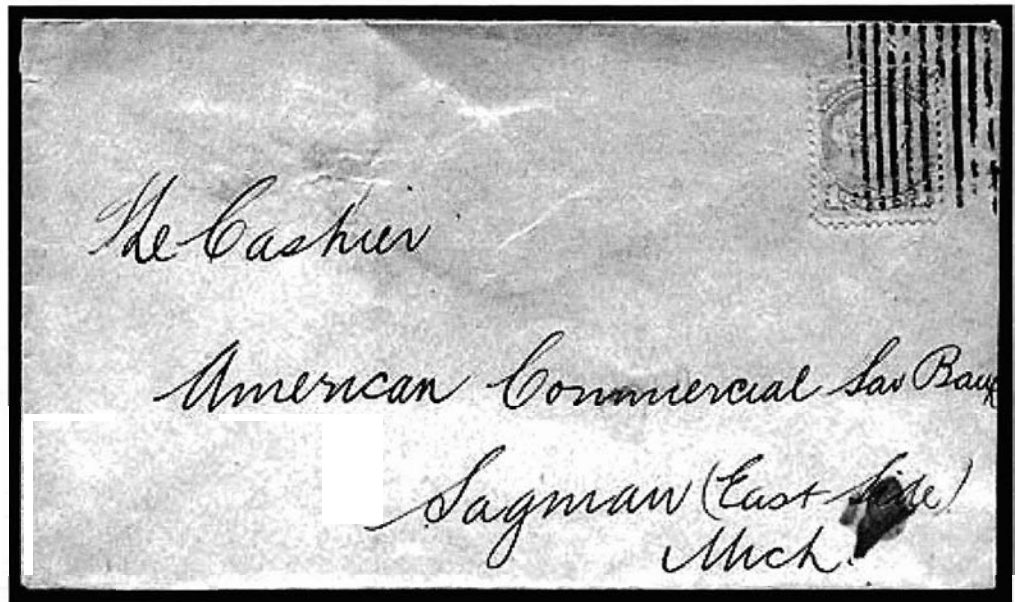 The Cashier
American Commercial Sav Bank
Saginaw (East Side)
Mich.